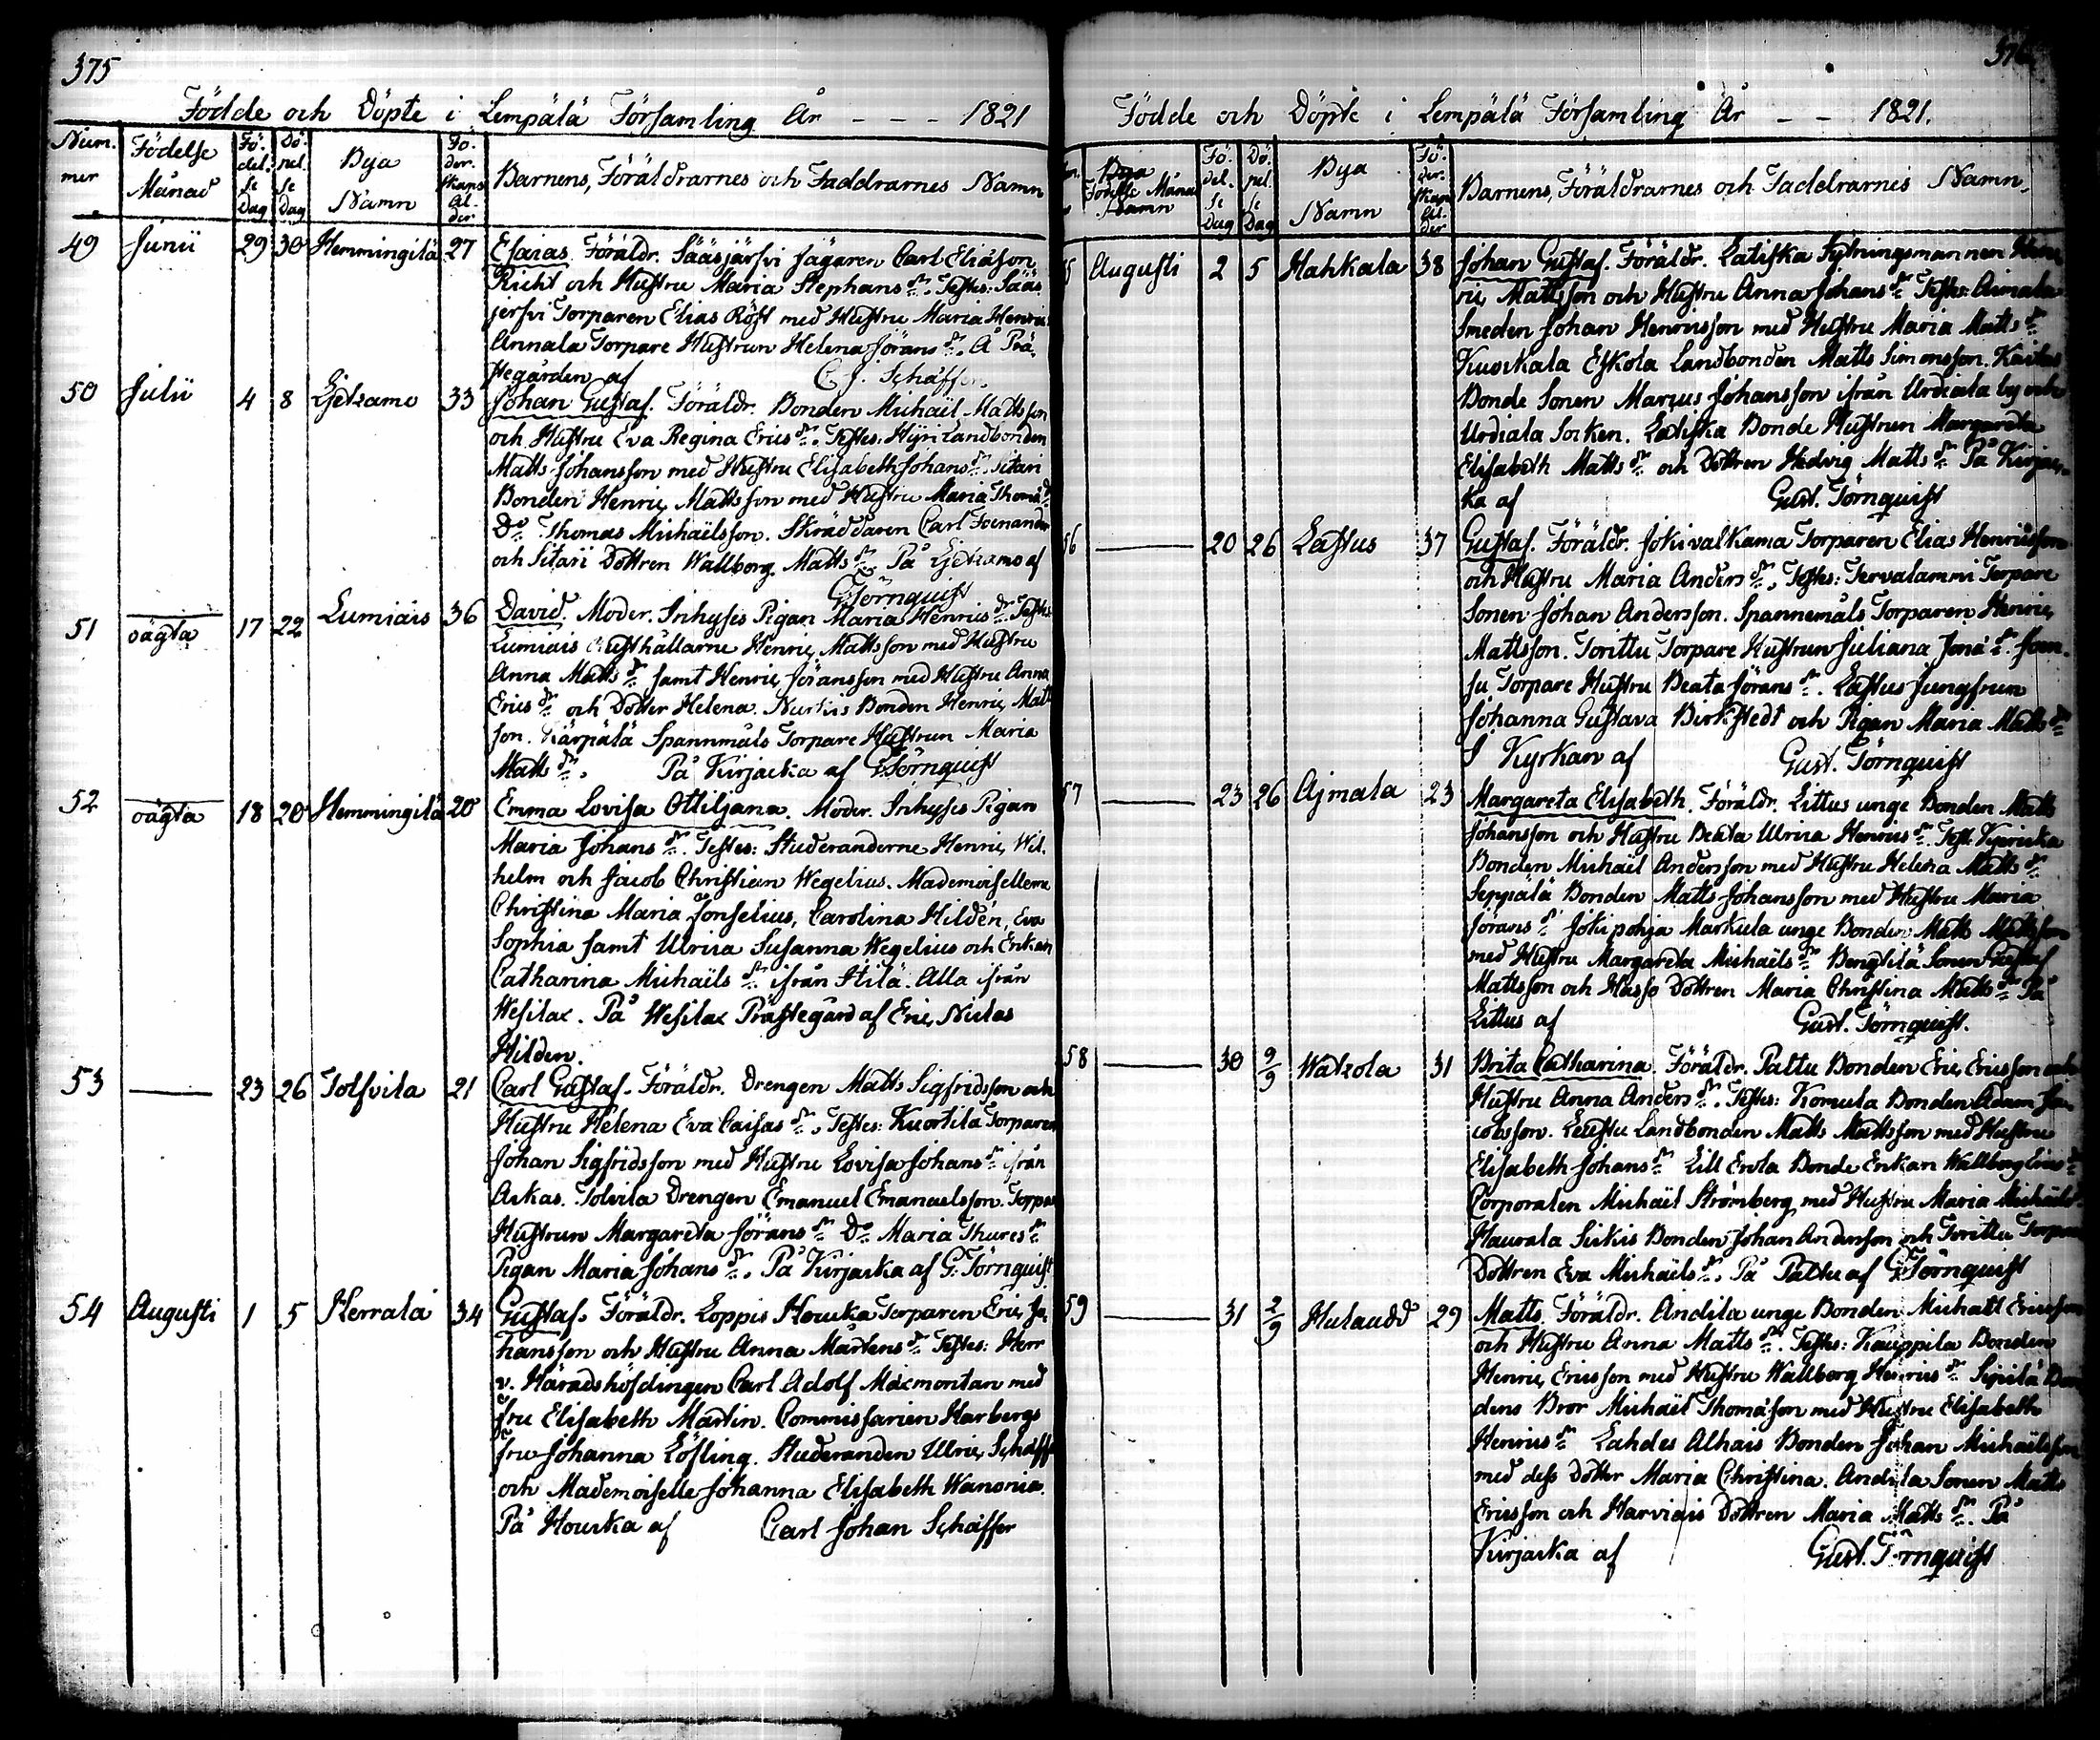 375
Födde och Döpte i Lempälä Församling År - - - 1821
Num. mer
Födelse Månad
Fö- del- se Dag
Dö- pel- se Dag
Bya Namn
Fö- der- skans Ål- der
Barnens, Föräldrarnes och Faddrarnes Namn
49 Junii 29 30 Hemmingilä 27 Esaias. Föräldr. Sääsjärfvi Jägaren Carl Eliasson
Richt och Hustru Maria Stephans dr. Testes: Sääs
jerfvi Torparen Elias Röst med Hustru Maria Henrics
Annala Torpare Hustrun Helena Jörans dr. Å Prä-
stegården af C. J. Schäffer
50 Julii 4 8 Kjetzamo 33 Johan Gustaf. Föräldr. Bonden Michaël Mattsson
och Hustru Eva Regina Erics dr. Testes: Hyri Landbonden
Matts Johansson med Hustru Elisabeth Johans dr. Sitari
Bonden Henric Mattsson med Hustru Maria Thomæ dr.
Do Thomas Michaëlsson. Skräddaren Carl Foenander
och Sitari Dottren Wallborg Matts dr. På Kjetzamo af
G. Törnquist
51 oägta 17 22 Lumiais 36 David. Moder. Inhyses Pigan Maria Henrics dr. Testes:
Lumiais Rusthållarne Henric Mattsson med Hustru
Anna Matts dr. samt Henric Jöransson med Hustru Anna
Erics dr. och Dotter Helena. Nurkis Bonden Henric Matts
son. Kärpälä Spannmåls Torpare Hustrun Maria
Matts dr. På Kirjaska af G. Törnquist
52 oägta 18 20 Hemmingilä 20 Emma Lovisa Ottiljana. Moder. Inhyses Pigan
Maria Johans dr. Testes: Studeranderne Henric Wil-
helm och Jacob Christian Wegelius. Mademoisellerne
Christina Maria Jonselius, Carolina Hildén, Eva
Sophia samt Ulrica Susanna Wegelius och Enkan
Catharina Michaëls dr. ifrån Hilä. Alla ifrån
Wesilax. På Wesilax Prästegård af Eric Niclas
Hilden.
53 — 23 26 Tolfvila 21 Carl Gustaf. Föräldr. Drengen Matts Sigfridsson och
Hustru Helena Eva Caisas dr. Testes: Kuortila Torparen
Johan Sigfridsson med Hustru Lovisa Johans dr. ifrån
Askas. Tolvila Drengen Emanuel Emanuelsson. Torpare
Hustrun Margareta Jörans dr. Do Maria Thures dr.
Pigan Maria Johans dr. På Kirjaska af G. Törnquist
54 Augusti 1 5 Herrala 34 Gustaf. Föräldr. Loppis Houka Torparen Eric Jo-
hansson och Hustru Anna Mårtens dr. Testes: Herr
v. Häradshöfdingen Carl Adolf Macmontan med
Fru Elisabeth Martin. Commissarien Harbergs
Fru Johanna Löfling. Studeranden Ulric Schäffer
och Mademoiselle Johanna Elisabeth Wanonia.
På Houcka af Carl Johan Schäffer
376
Födde och Döpte i Lempälä Församling År - - 1821.
Födelse Månad
Fö- del- se Dag
Dö- pel- se Dag
Bya Namn
Fö- der- skans Ål- der
Barnens, Föräldrarnes och Faddrarnes Namn.
55 Augusti 2 5 Hahkala 38 Johan Gustaf. Föräldr. Latiska Hytningsmannen Hen-
ric Mattsson och Hustru Anna Johans dr. Testes: Aimala
Smeden Johan Henricsson med Hustru Maria Matts dr.
Kuoskala Eskola Landbonden Matts Simonsson.
Bonde Sonen Marcus Johansson ifrån Urdiala by och
Urdiala Socken. Latiska Bonde Hustrun Margareta
Elisabeth Matts dr. och Dottren Hedvig Matts dr. På Kirjas-
ka af Gust. Törnquist
56 — 20 26 Lastus 37 Gustaf. Föräldr. Jokivalkama Torparen Elias Henricsson
och Hustru Maria Anders dr. Testes: Tervalammi Torpare
Sonen Johan Andersson. Spannemåls Torparen Henric
Mattsson. Torittu Torpare Hustrun Juliana Jonæ dr. Joen-
su Torpare Hustru Beata Jörans dr. Lastus Jungfrun
Johanna Gustava Birkstedt och Pigan Maria Matts dr.
I Kyrkan af Gust. Törnquist
57 — 23 26 Ajmala 23 Margareta Elisabeth. Föräldr. Littus unge Bonden Matts
Johansson och Hustru Beata Ulrica Henrics dr. Test.
Bonden Michaël Andersson med Hustru Helena Matts dr.
Seppälä Bonden Matts Johansson med Hustru Maria
Jörans dr. Jokipohja Markula unge Bonden Matts Mattsson
med Hustru Margareta Michaëls dr. Bengtilä Sonen Gustaf
Mattsson och Hasso Dottren Maria Christina Matts dr. På
Littus af Gust. Törnquist.
58 — 30 9/9 Watzola 31 Brita Catharina. Föräldr. Pattu Bonden Eric Ericsson och
Hustru Anna Anders dr. Testes: Komula Bonden Adam Ja-
cobsson. Leustu Landbonden Matts Mattsson med Hustru
Elisabeth Johans dr. Lill Erola Bonde Enkan Wallborg Erics dr.
Corporalen Michaël Strömberg med Hustru Maria Michaëls
Haurala Sirkis Bonden Johan Andersson och Torittu Torpare
Dottren Eva Michaëls dr. På Pattu af G. Törnquist
59 — 31 2/9 Hulaudd 29 Matts. Föräldr. Andila unge Bonden Michaël Ericsson
och Hustru Anna Matts dr. Testes: Kauppila Bonden
Henric Ericsson med Hustru Wallborg Henrics dr. Sipilä Bon
dens Bror Michaël Thomæson med Hustru Elisabeth
Henrics dr. Lahdes Alhais Bonden Johan Michaëlsson
med dess Dotter Maria Christina. Andila Sonen Matts
Ericsson och Harviais Dottren Maria Matts dr. På
Kirjaska af Gust. Törnquist